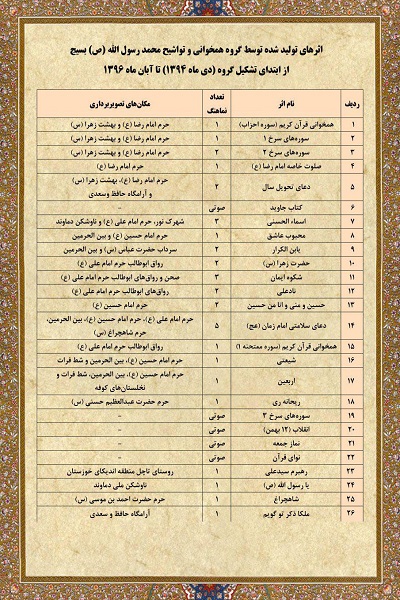 اثرهای تولید شده توسط گروه همخوانی و تواشیح محمد رسول الله (ص) بسیج
از ابتدای تشکیل گروه (دی ماه ۱۳۹۴) تا آبان ماه ۱۳۹۶
ردیف نام اثر تعداد نماهنگ مکان‌های تصویربرداری
۱ همخوانی قرآن کریم (سوره احزاب) ۱ حرم امام رضا (ع) و بهشت زهرا (س)
۲ سوره‌های سرخ ۱ ۱ حرم امام رضا (ع) و بهشت زهرا (س)
۳ سوره‌های سرخ ۲ ۲ حرم امام رضا (ع) و بهشت زهرا (س)
۴ صلوت خاصه امام رضا (ع) ۱ حرم امام رضا (ع)
۵ دعای تحویل سال ۲ حرم امام رضا (ع)، بهشت زهرا (س)
و آرامگاه حافظ وسعدی
۶ کتاب جاوید صوتی
۷ اسماء الحسنی ۳ شهرک نور، حرم امام علی (ع) و ناوشکن دماوند
۸ محبوب عاشق ۱ حرم امام حسین (ع) و بین الحرمین
۹ یابن الکرار ۲ سرداب حضرت عباس (س) و بین الحرمین
۱۰ حضرت زهرا (س) ۲ رواق ابوطالب حرم امام علی (ع)
۱۱ شکوه ایمان ۳ صحن و رواق‌های ابوطالب حرم امام علی (ع)
۱۲ نادعلی ۲ رواق‌های ابوطالب حرم امام علی (ع)
۱۳ حسین و منی و انا من حسین ۲ حرم امام حسین (ع)
۱۴ دعای سلامتی امام زمان (عج) ۵ حرم امام علی (ع)، حرم امام حسین (ع)، بین الحرمین،
حرم شاهچراغ (س)
۱۵ همخوانی قرآن کریم (سوره ممتحنه ۱) ۱ رواق ابوطالب حرم امام علی (ع)
۱۶ شیعتی ۱ حرم امام حسین (ع)، بین الحرمین و شط فرات
۱۷ اربعین ۱ حرم امام حسین (ع)، بین الحرمین، شط فرات و
نخلستان‌های کوفه
۱۸ ریحانه ری ۱ حرم حضرت عبدالعظیم حسنی (س)
۱۹ سوره‌های سرخ ۳ صوتی -
۲۰ انقلاب (۱۲ بهمن) صوتی -
۲۱ نماز جمعه صوتی -
۲۲ نوای قرآن صوتی -
۲۳ رهبرم سیدعلی ۱ روستای تاچل منطقه اندیکای خوزستان
۲۴ یا رسول الله (ص) ۱ ناوشکن ملی دماوند
۲۵ شاهچراغ ۱ حرم حضرت احمد بن موسی (س)
۲۶ ملکا ذکر تو گویم ۱ آرامگاه حافظ و سعدی